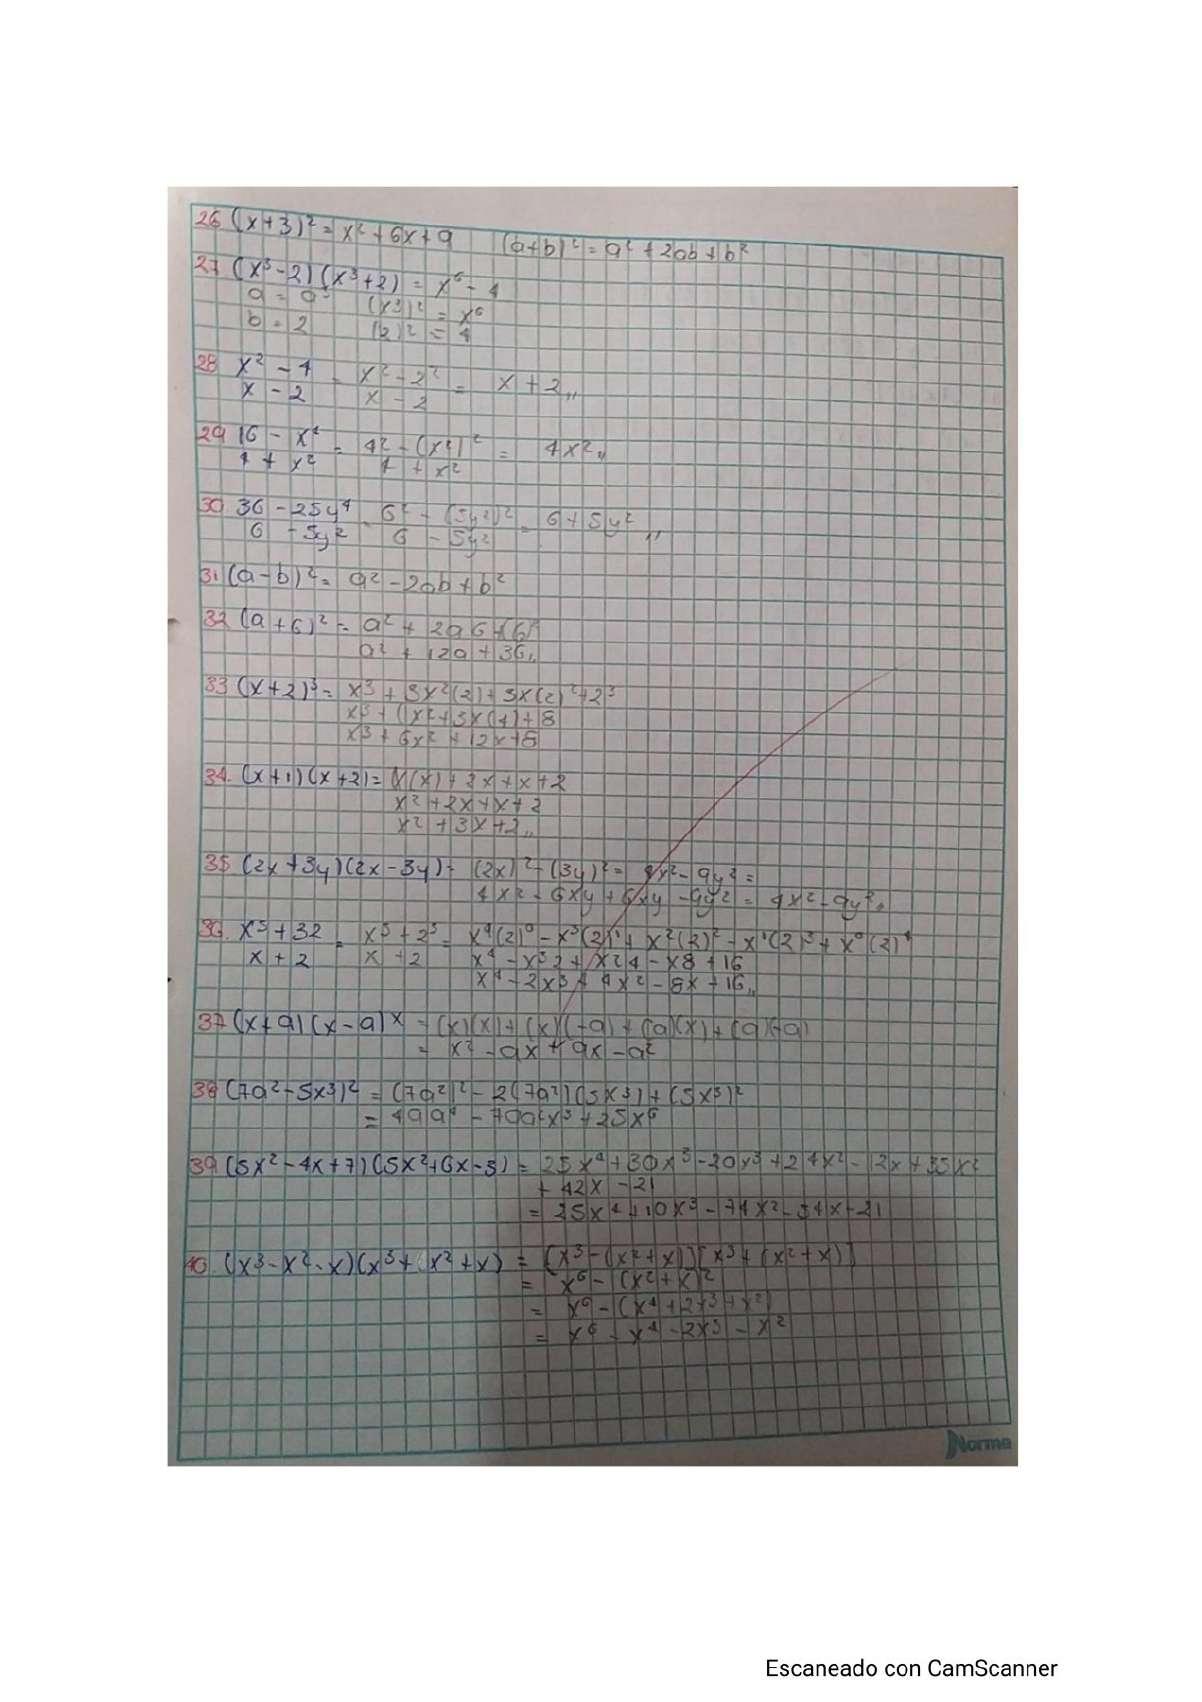 26 (x+3)² = x² + 6x + 9 (a+b)² = a² + 2ab + b²
27 (x³-2)(x³+2) = x⁶ - 4
a = a³ (x³)² = x⁶
b = 2 (2)² = 4
28 x² - 4 = x² - 2² = x + 2,,
x - 2 x - 2
29 16 - x⁴ = 4² - (x²)² = 4x²,,
4 + x² 4 + x²
30. 36 - 25y⁴ = 6² - (5y²)² = 6 + 5y²,,
6 - 5y² 6 - 5y²
31 (a-b)² = a² - 2ab + b²
32 (a+6)² = a² + 2a6 + (6)²
a² + 12a + 36,,
33 (x+2)³ = x³ + 3x²(2) + 3x(2)² + 2³
x³ + 6x² + 3x(4) + 8
x³ + 6x² + 12x + 8
34. (x+1)(x+2) = x(x) + 2x + x + 2
x² + 2x + x + 2
x² + 3x + 2,,
35 (2x+3y)(2x-3y) = (2x)² - (3y)² = 4x² - 9y² =
4x² - 6xy + 6xy - 9y² = 4x² - 9y²,,
36. x⁵ + 32 = x⁵ + 2⁵ = x⁴(2)⁰ - x³(2)¹ + x²(2)² - x¹(2)³ + x⁰(2)⁴
x + 2 x + 2 x⁴ - x³2 + x²4 - x8 + 16
x⁴ - 2x³ + 4x² - 8x + 16,,
37 (x+a)(x-a) x = (x)(x) + (x)(-a) + (a)(x) + (a)(-a)
= x² - ax + ax - a²
38 (7a²-5x³)² = (7a²)² - 2(7a²)(5x³) + (5x³)²
= 49a⁴ - 70a²x³ + 25x⁶
39. (5x²-4x+7)(5x²+6x-3) = 25x⁴ + 30x³ - 20x³ + 24x² - 12x + 35x²
+ 42x - 21
= 25x⁴ + 10x³ - 74x² - 54x - 21
40. (x³-x²-x)(x³+x²+x) = [x³-(x²+x)][x³+(x²+x)]
= x⁶ - (x²+x)²
= x⁶ - (x⁴+2x³+x²)
= x⁶ - x⁴ - 2x³ - x²
Norma
Escaneado con CamScanner